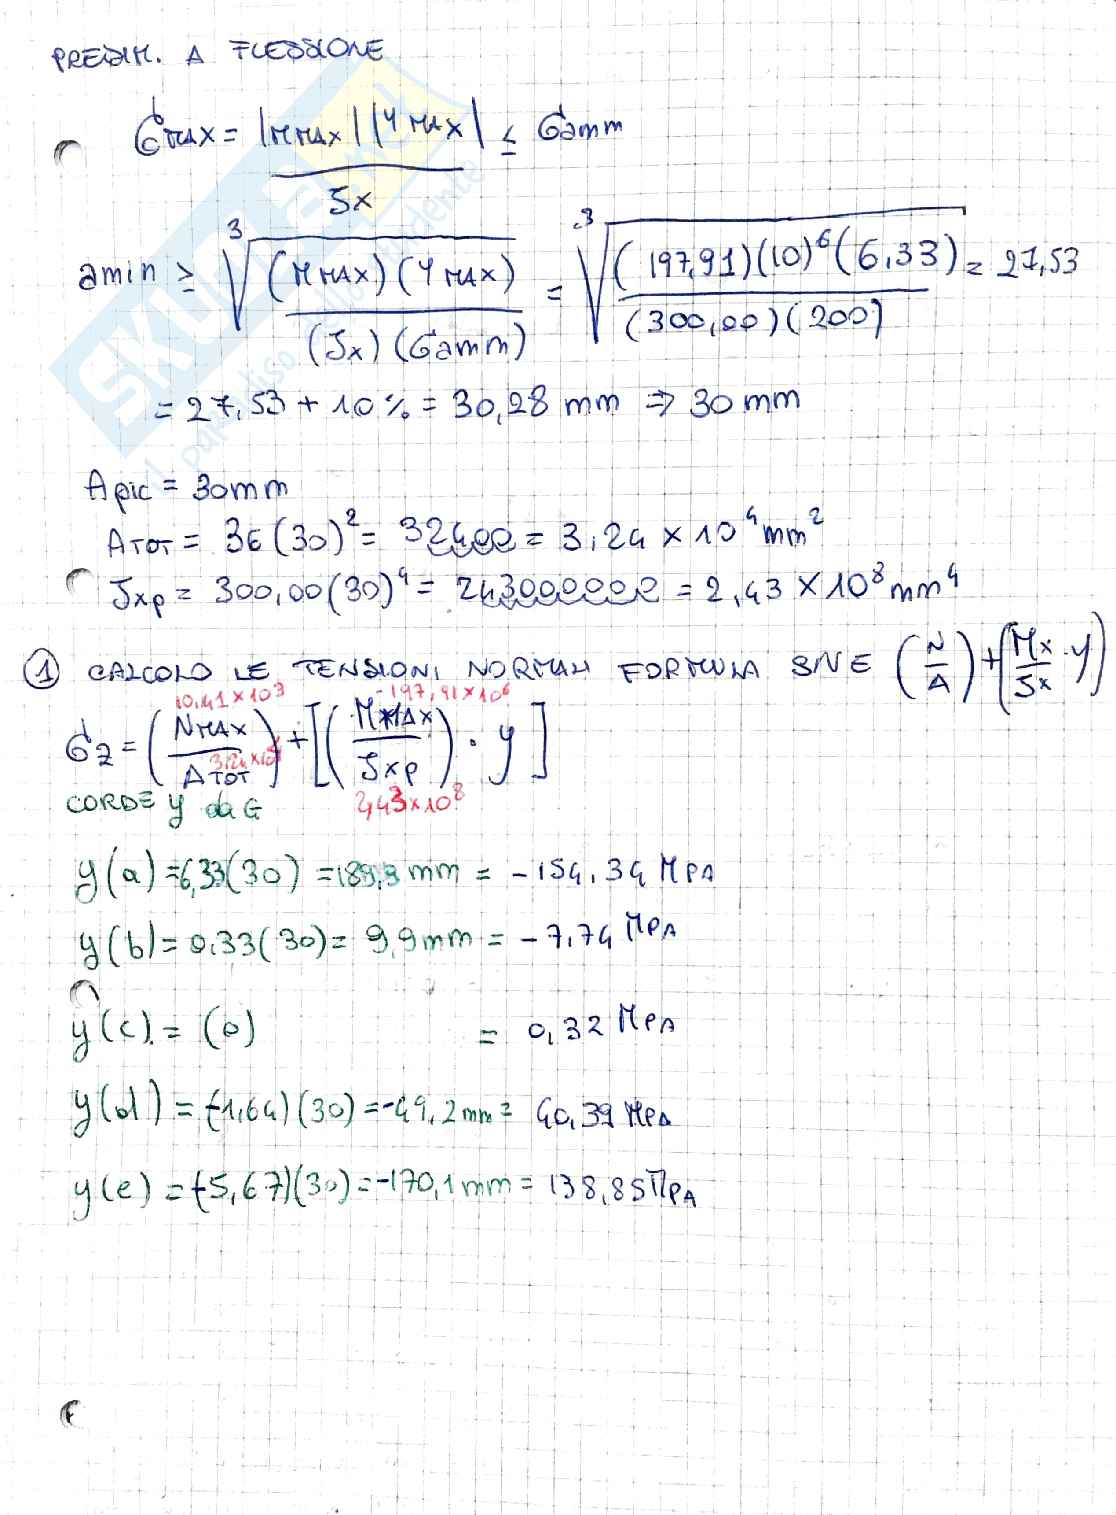 PREDIM. A FLESSIONE
σMAX = |MMAX| |YMAX| / Jx ≤ σamm
amin ≥ ∛((MMAX)(YMAX) / (Jx)(σamm)) = ∛((197,91)(10)⁶(6,33) / (300,00)(200)) = 27,53
= 27,53 + 10% = 30,28 mm ⇒ 30 mm
Apic = 30mm
ATOT = 36(30)² = 32400 = 3,24 × 10⁴ mm²
Jxp = 300,00(30)⁴ = 243000000 = 2,43 × 10⁸ mm⁴
① CALCOLO LE TENSIONI NORMALI FORMULA (N/A) + (Mx/Jx · y)
10,41×10³ -197,91×10⁶
σz = (NMAX/ATOT) + [(MMAX/Jxp) · y]
3,24×10⁴ 2,43×10⁸
CORDE y da G
y(a) = 6,33(30) = 189,9 mm = -154,34 MPA
y(b) = 0,33(30) = 9,9mm = -7,74 MPA
y(c) = (0) = 0,32 MPA
y(d) = (-1,64)(30) = -49,2mm = 40,39 MPA
y(e) = (-5,67)(30) = -170,1mm = 138,85 MPA
SKUOLA.net
il paradiso dello studente